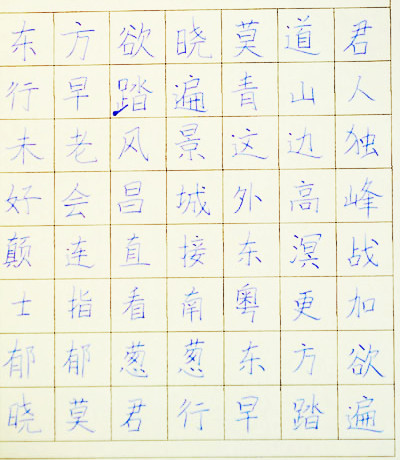 东方欲晓莫道君
行早踏遍青山人
未老风景这边独
好会昌城外高峰
颠连直接东溟战
士指看南粤更加
郁郁葱葱东方欲
晓莫君行早踏遍